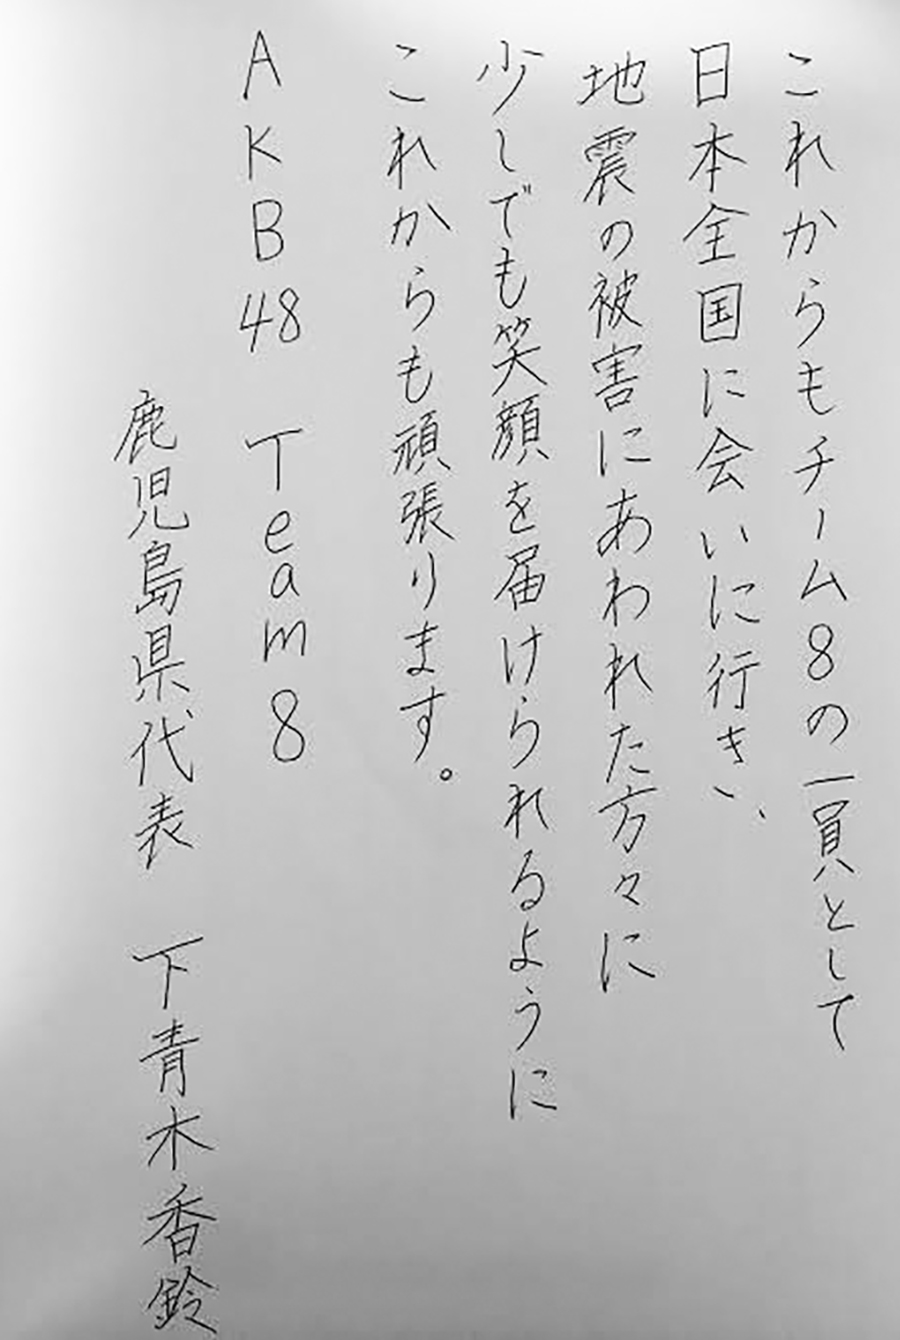 これからもチーム8の一員として
日本全国に会いに行き、
地震の被害にあわれた方々に
少しでも笑顔を届けられるように
これからも頑張ります。
AKB48 Team8
鹿児島県代表 下青木香鈴